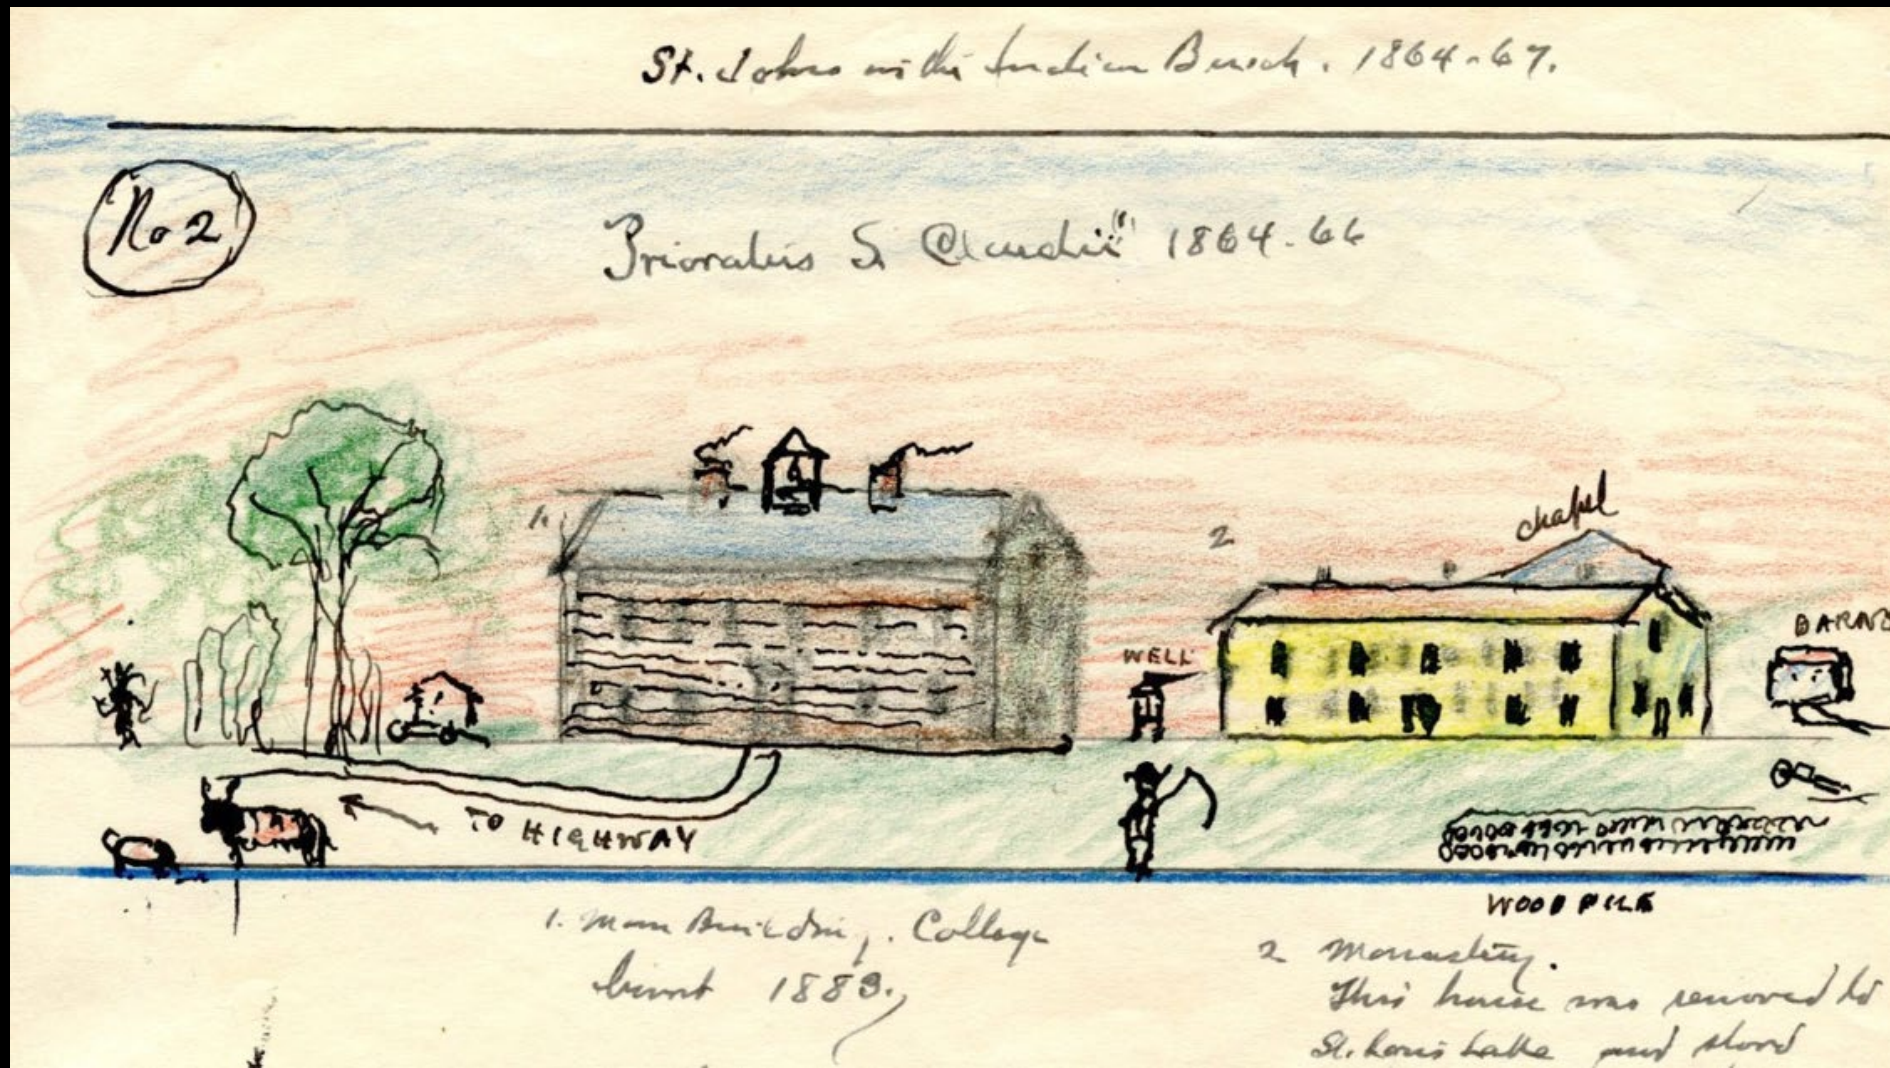 St. Johns in the Indian Bush. 1864-67.
No 2
Prioratus S. Claudii 1864-66
chapel
1.
2
BARNS
WELL
TO HIGHWAY
WOOD PILE
1. Main Building. College
burnt 1883.
2 Monastery.
This house was removed to
St. Louis Lake and stood